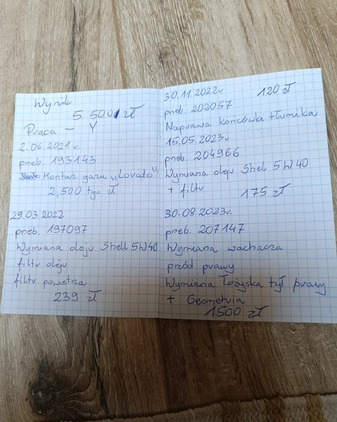 Wynik
5 500 zł
Praca –
2.06.2021 r.
prieb. 193143
Montaż gazu „Lovato"
2,500 tyś. zł
29.03.2022
prieb. 197097
Wymiana oleju Shell 5W40
filtr oleju
filtr powietrza
239 zł
30.11.2022 r.
120 zł
prieb. 202057
Naprawa końcówka tłumika
15.05.2023 r.
prieb. 204966
Wymiana oleju Shell 5W40
+ filtr
175 zł
30.08.2023 r.
prieb. 207147
Wymiana wachacza
przód prawy
Wymiana łożyska tył prawy
+ Geometria
1500 zł